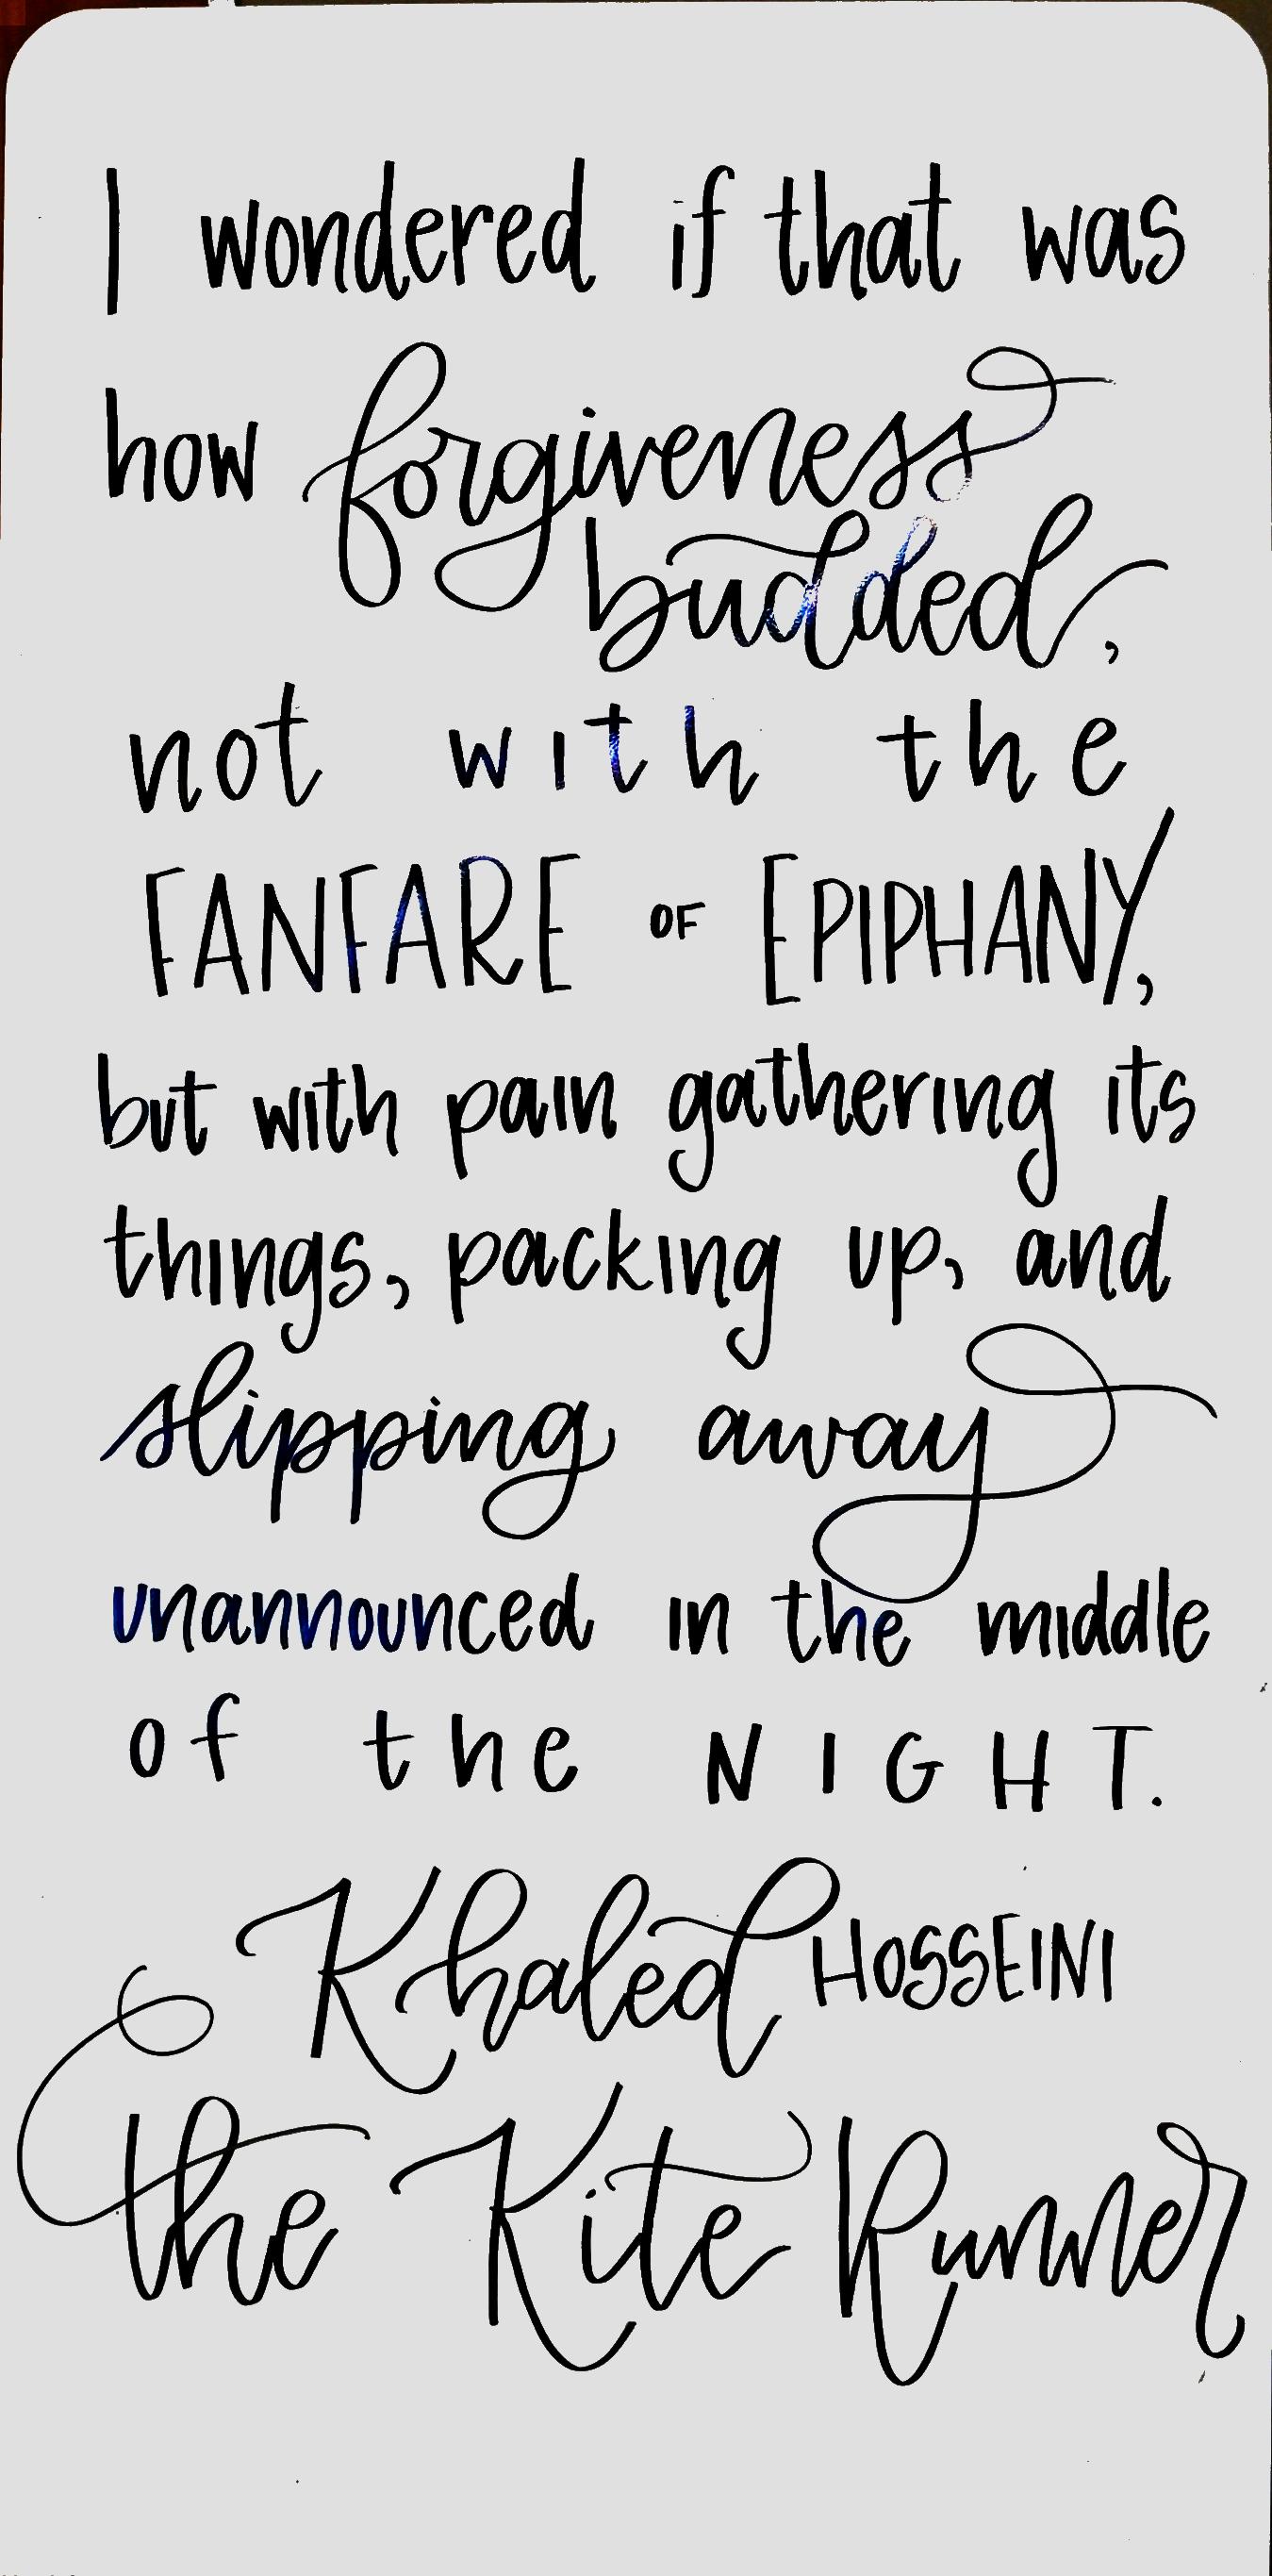 I wondered if that was
how forgiveness
budded,
not with the
FANFARE OF EPIPHANY,
but with pain gathering its
things, packing up, and
slipping away
unannounced in the middle
of the NIGHT.
Khaled HOSSEINI
the Kite Runner